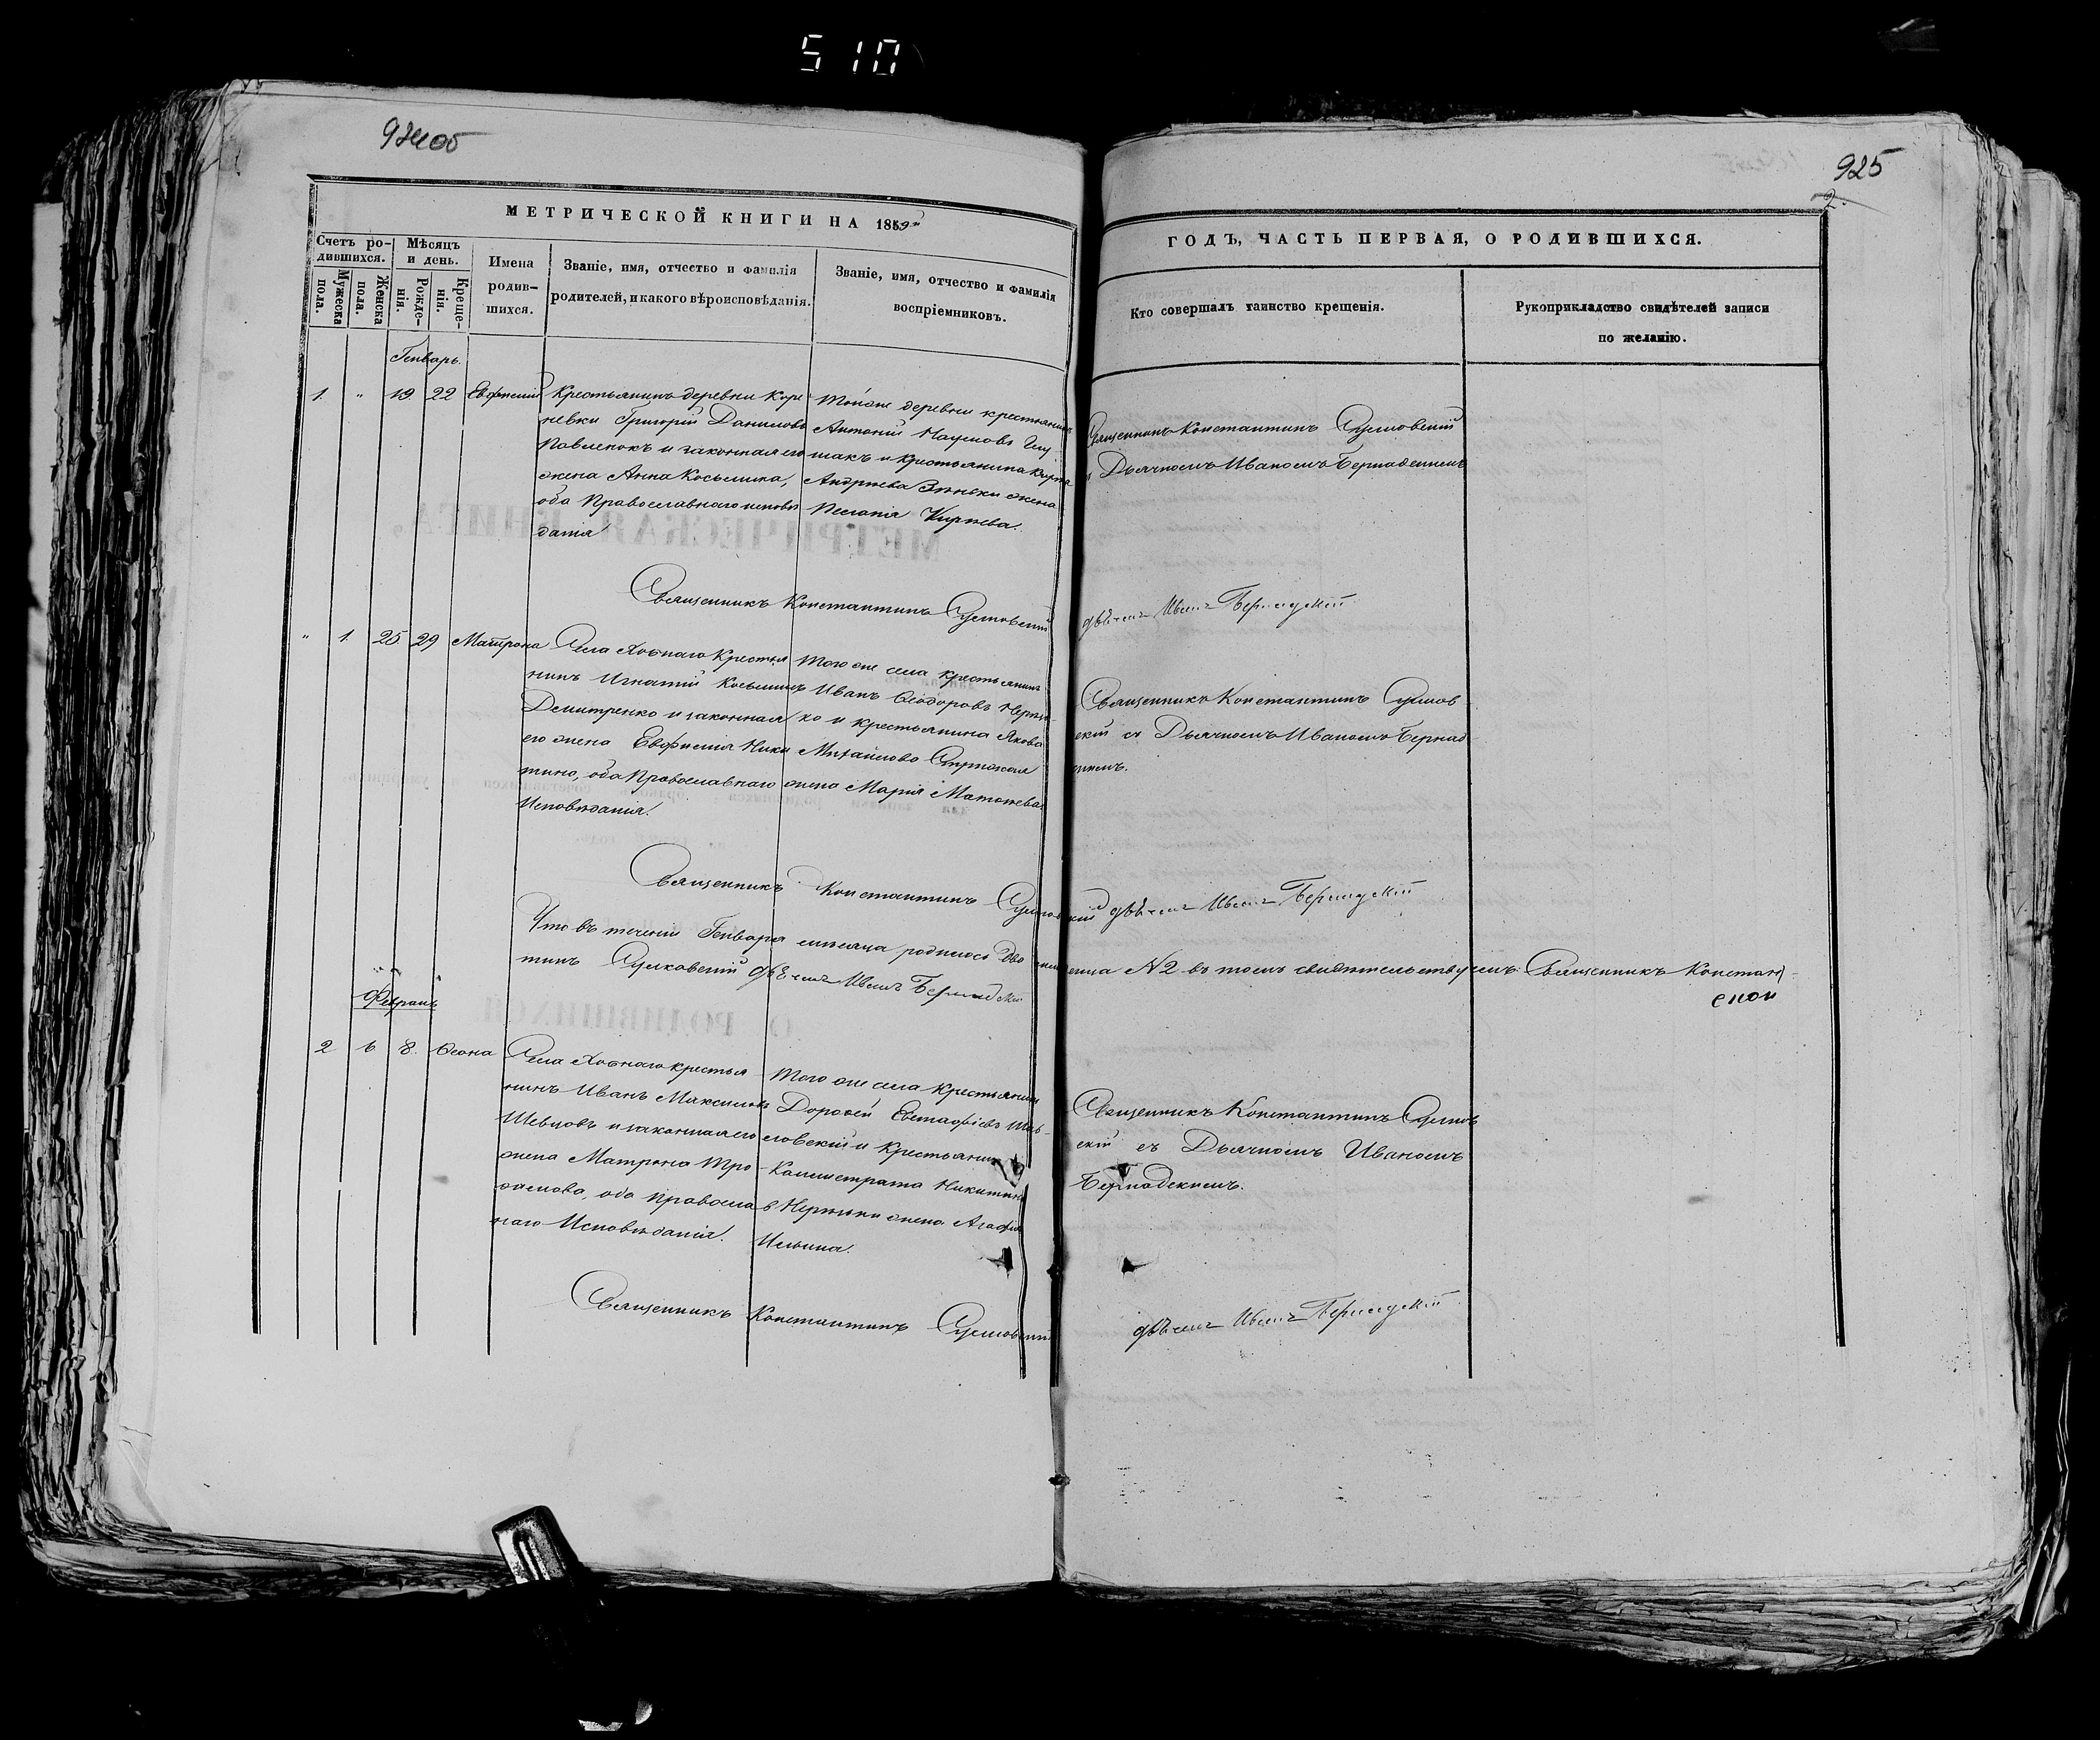 510
924 об
925
2.
МЕТРИЧЕСКОЙ КНИГИ НА 1859
ГОДЪ, ЧАСТЬ ПЕРВАЯ, О РОДИВШИХСЯ.
Счетъ ро-
дившихся.
Мужеска
пола.
Женска
пола.
Мѣсяцъ
и день.
Рожде-
нія.
Креще-
нія.
Имена
родив-
шихся.
Званіе, имя, отчество и фамилія
родителей, и какого вѣроисповѣданія.
Званіе, имя, отчество и фамилія
воспріемниковъ.
Кто совершалъ таинство крещенія.
Рукоприкладство свидѣтелей записи
по желанію.
Генварь.
1. " 19 22 Евфимій
Крестьянинъ деревни Коре
невки Григорій Даниловъ
Павленокъ и законная его
жена Анна Косьмина,
оба Православнаго исповѣ
данія
Тойже деревни крестьянинъ
Антоній Наумовъ
и Крестьянина
Андреева жена
Пелагія
Священникъ Константинъ
и Дьячкомъ Иваномъ Бернадскимъ
Священникъ Константинъ
Иванъ Бернадскій
" 1. 25 29 Матрона
Села Хоѳнаго Крестья
нинъ Игнатій Косьминъ
Демитренко и законная
его жена Евфимія Ники
тина, оба Православнаго
Исповѣданія.
Того же села крестьянинъ
Иванъ Ѳеодоровъ
ко и крестьянина Якова
Михайлова
жена Марія
Священникъ Константинъ
скій съ Дьячкомъ Иваномъ Бернад
скимъ.
Священникъ Константинъ
Иванъ Бернадскій
Что въ теченіи Генваря месяца родилось два младенца №2 въ томъ свидѣтельствуемъ: Священникъ Констан
тинъ Иванъ Бернадскій
Февраль
2 6 8. Ѳеона
Села Хоѳнаго крестья
нинъ Иванъ Максимовъ
Шевцовъ и законная его
жена Матрона Тро
фимова, оба Правосла
внаго Исповѣданія.
Того же села Крестьянинъ
Дороѳей Евстафіевъ
и Крестьянина
Калистрата Никитина
жена Агафія
Ильина.
Священникъ Константинъ
скій съ Дьячкомъ Иваномъ
Бернадскимъ.
Священникъ Константинъ
Иванъ Бернадскій